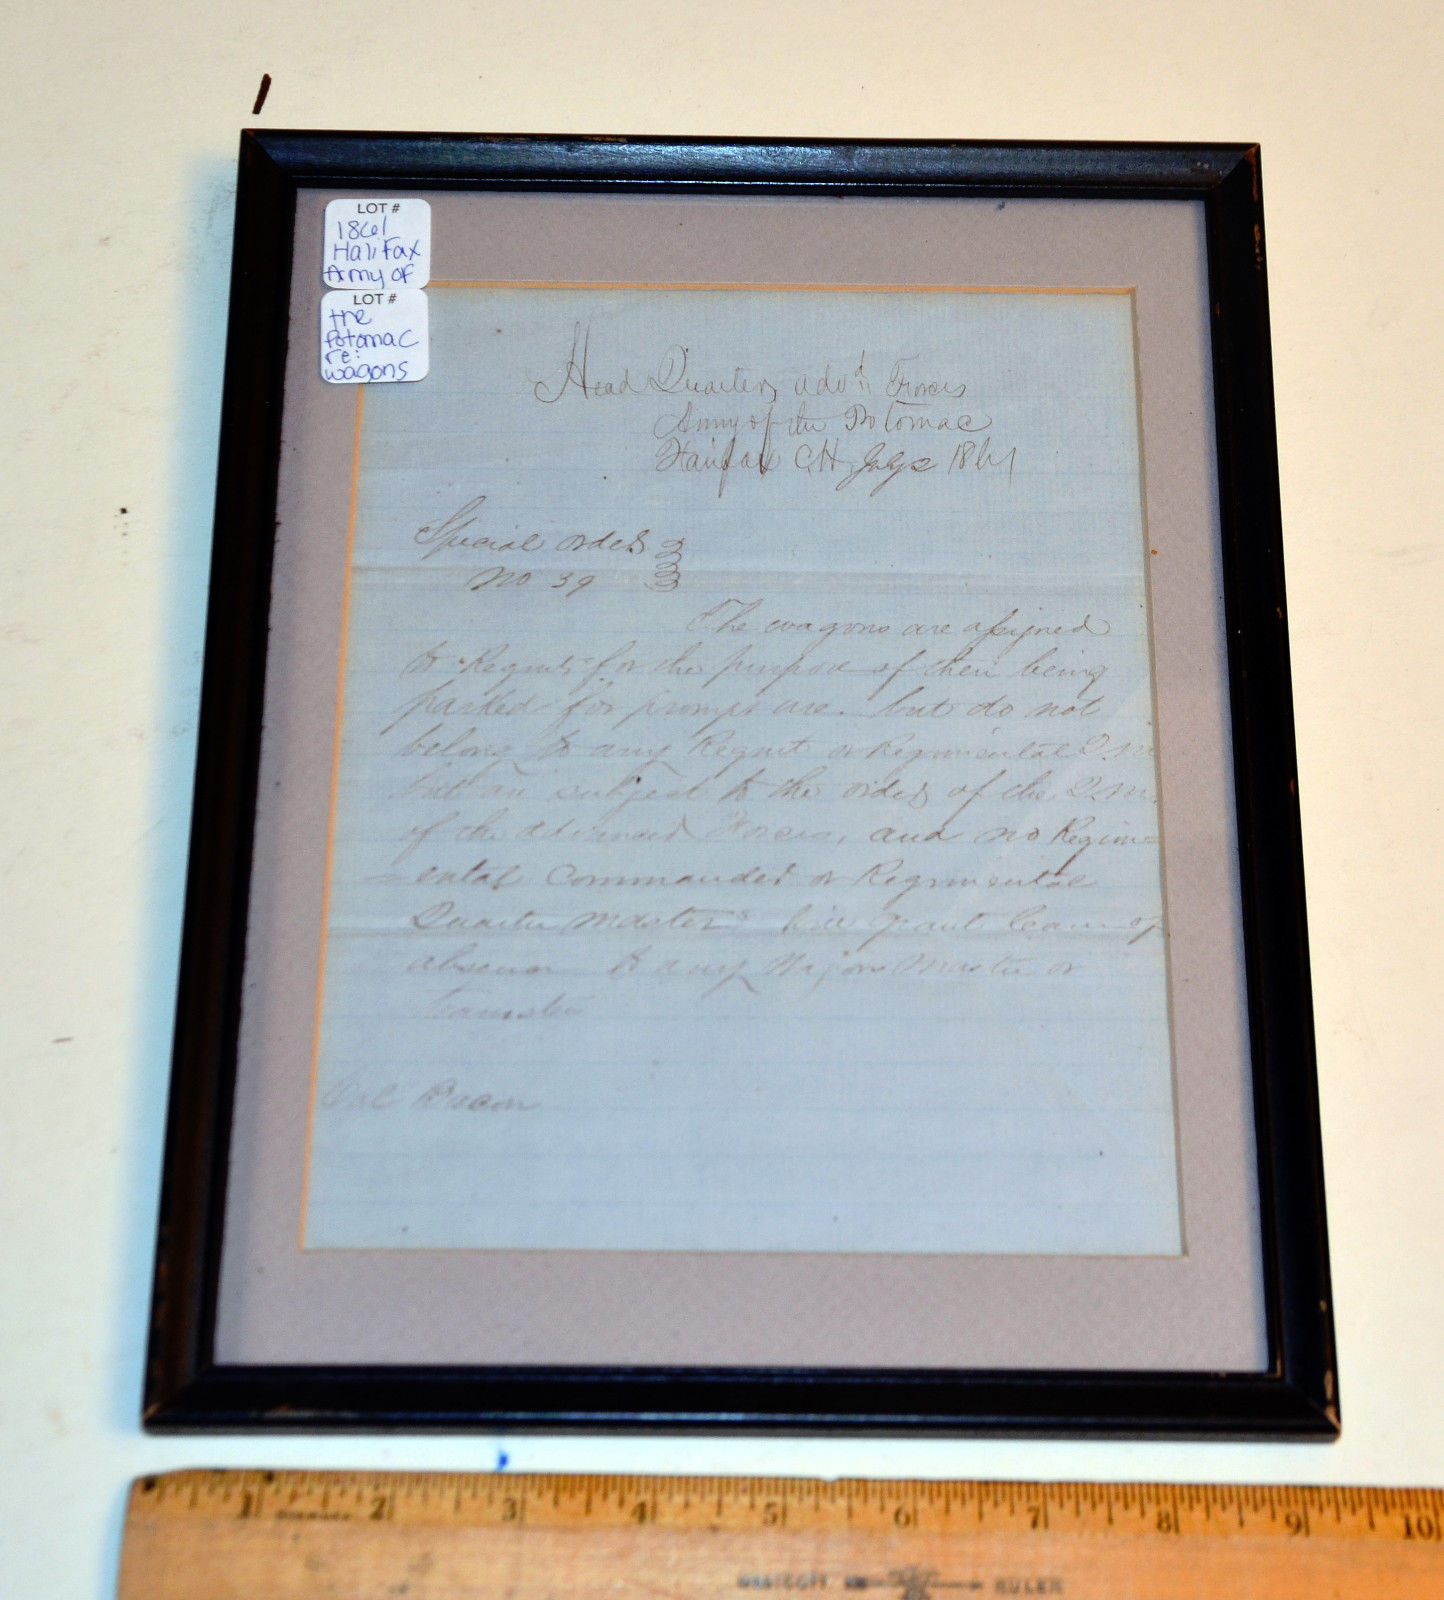 LOT #
1861
HaliFax
Army of
LOT #
the
Potomac
re:
wagons
Head Quarters adv'd Forces
Army of the Potomac
Fairfax C.H. July 2 1861
Special orders
No 39
The wagons are assigned
to Regmts for the purpose of their being
parked for prompt use. but do not
belong to any Regmt or Regimental Q.M.
but are subject to the orders of the Q.M.
of the advanced Forces, and no Regim=
=ental Commander or Regimental
Quarter Master will grant leave of
absence to any Wagon Master or
teamster
Col Bacon
1 2 3 4 5 6 7 8 9 10
WESTCOTT RULER